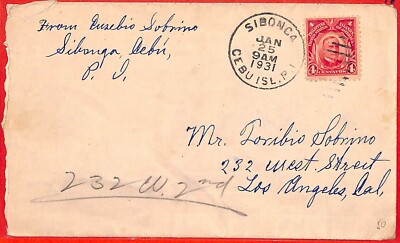 From Eusebio Sobrino
Sibonga, Cebú,
P. I.
SIBONGA
JAN
25
9AM
1931
CEBU ISL. P.I.
4 CENTAVOS 4
Mr. Toribio Sobrino
232 West Street
Los Angeles, Cal,
232 W. 2nd